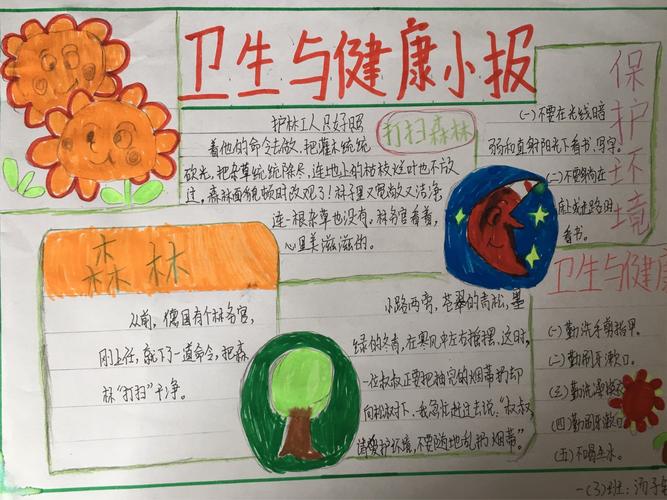 卫生与健康小报
护林工人只好照
着他的命令去做,把灌木统统
砍光,把杂草统统除尽,连地上的枯枝烂叶也不放
过,森林面貌顿时改观了!林子里又宽敞又洁净,
连一根杂草也没有。林务官看着,
心里美滋滋的。
打扫森林
(一)不要在光线暗
弱和直射阳光下看书、写字。
(二)不要躺在
床上或走路时
看书。
保护环境
森林
从前,德国有个林务官,
刚上任,就下了一道命令,把森
林“打扫”干净。
小路两旁,苍翠的青松,墨
绿的冬青,在寒风中左右摇摆,这时,
一位叔叔正要把抽完的烟蒂扔却
向松树下,我急忙赶过去说:“叔叔,
请爱护环境,不要随地乱扔烟蒂”。
卫生与健
(一)勤洗手剪指甲。
(二)勤刷牙漱口。
(三)勤洗澡
(四)勤刷牙漱口
(五)不喝生水。
一(3)班:汤子